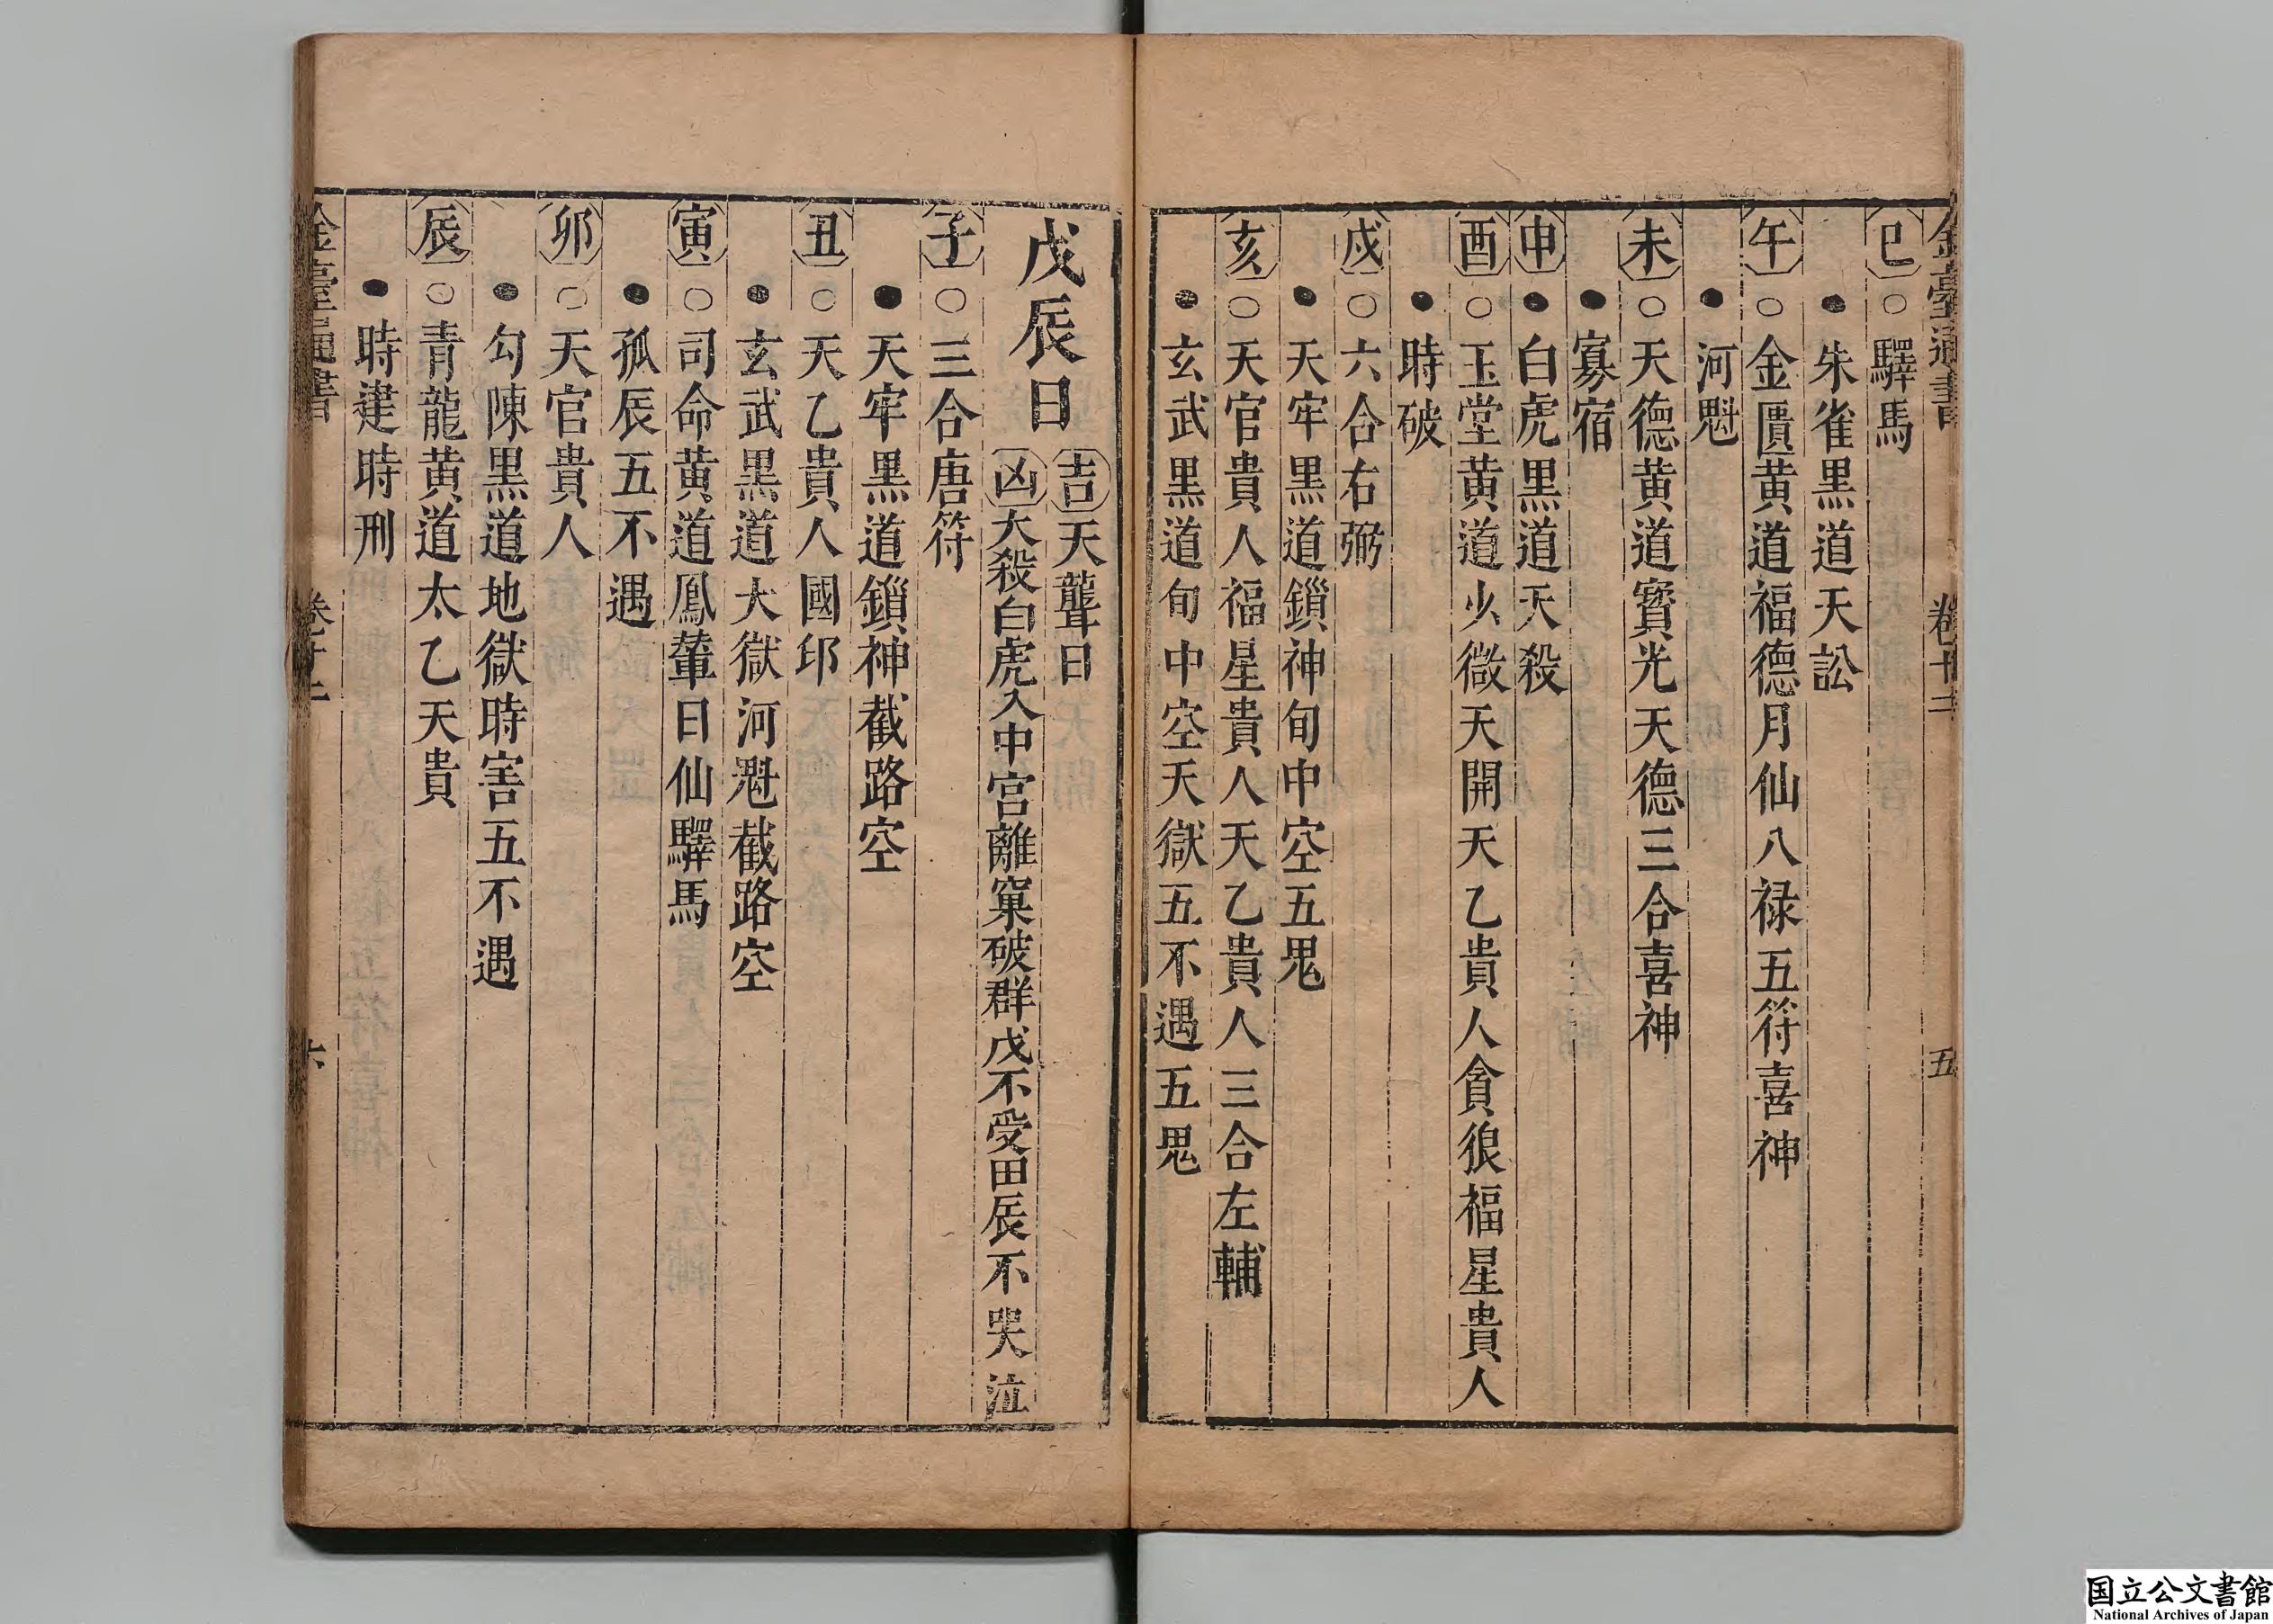 金臺通書 卷廿二 五
巳○驛馬
●朱雀黑道天訟
午○金匱黃道福德月仙八祿五符喜神
●河魁
未○天德黃道寶光天德三合喜神
●寡宿
申●白虎黑道天殺
酉○玉堂黃道少微天開天乙貴人貪狼福星貴人
●時破
戌○六合右弼
●天牢黑道鎖神旬中空五鬼
亥○天官貴人福星貴人天乙貴人三合左輔
●玄武黑道旬中空天獄五不遇五鬼
戊辰日
吉天聾日
凶大殺白虎入中宮離窠破群戊不受田辰不哭泣
子○三合唐符
●天牢黑道鎖神截路空
丑○天乙貴人國印
●玄武黑道大獄河魁截路空
寅○司命黃道鳳輦日仙驛馬
●孤辰五不遇
卯○天官貴人
●勾陳黑道地獄時害五不遇
辰○青龍黃道太乙天貴
●時建時刑
金臺通書 六
国立公文書館
National Archives of Japan